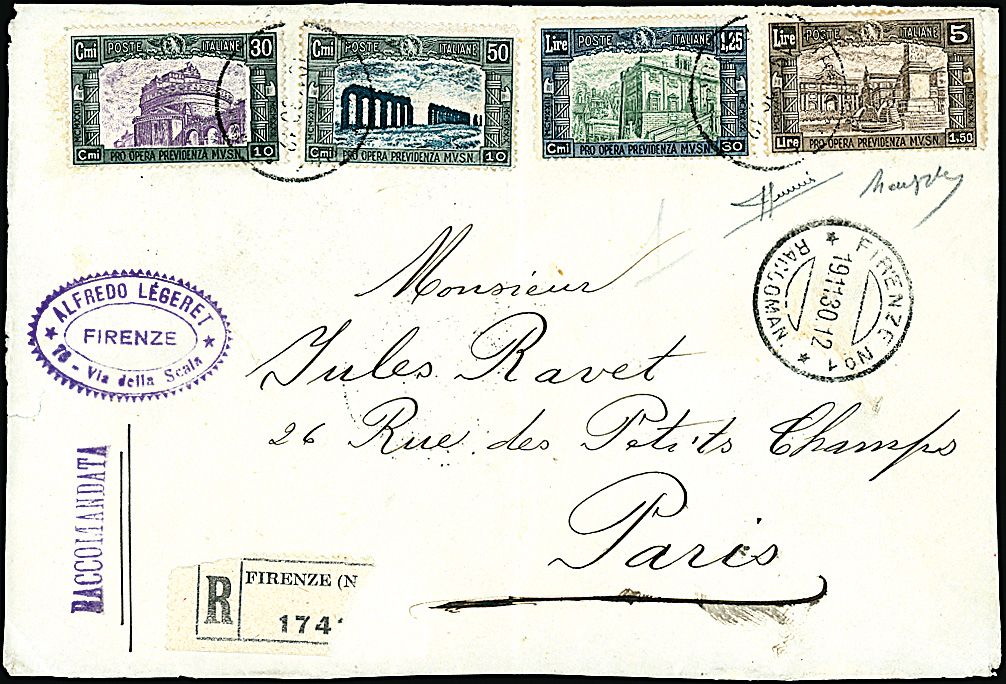 Cmi POSTE ITALIANE 30
Cmi 10
PRO OPERA PREVIDENZA M.V.S.N.
Cmi POSTE ITALIANE 50
Cmi 10
PRO OPERA PREVIDENZA M.V.S.N.
Lire POSTE ITALIANE 1,25
Cmi 60
PRO OPERA PREVIDENZA M.V.S.N.
Lire POSTE ITALIANE 5
Lire 1.50
PRO OPERA PREVIDENZA M.V.S.N.
FIRENZE No1
19.11.30.12
RACCOMAN
ALFREDO LÉGERET
FIRENZE
78 - Via della Scala
Monsieur
Jules Ravet
26 Rue des Petits Champs
Paris
RACCOMANDATA
R FIRENZE (N
174